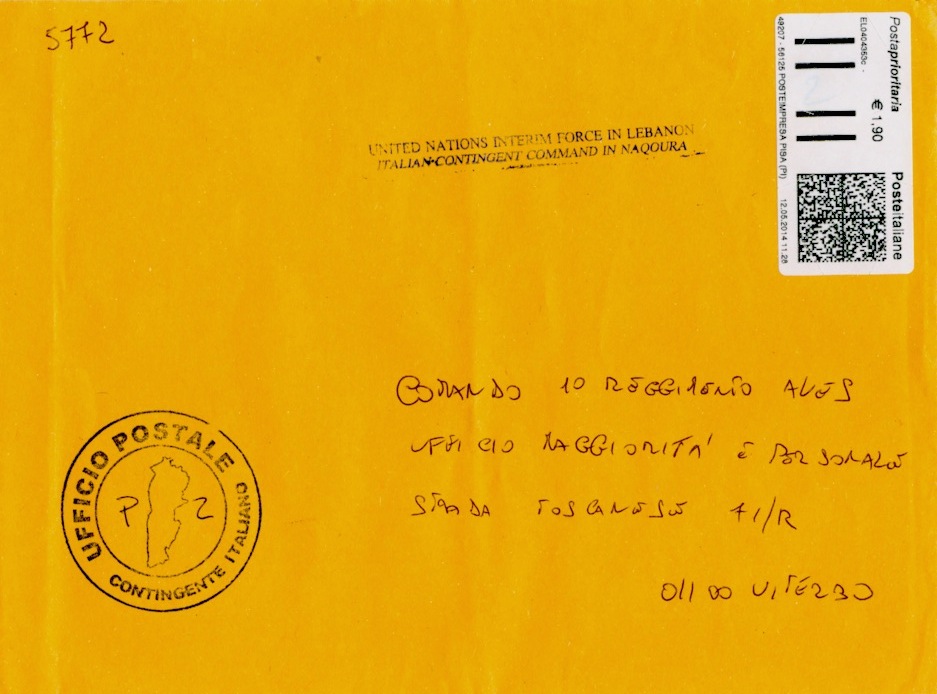 5772
Postaprioritaria
EL0404353c -
€ 1,90
49207 - 56125 POSTEIMPRESA PISA (PI) 12.05.2014 11.28
Posteitaliane
UNITED NATIONS INTERIM FORCE IN LEBANON
ITALIAN CONTINGENT COMMAND IN NAQOURA
COMANDO 10 REGGIMENTO AVES
UFFICIO MAGGIORITÀ E PERSONALE
STRADA TOSCANESE 71/R
01100 VITERBO
UFFICIO POSTALE
P 2
CONTINGENTE ITALIANO